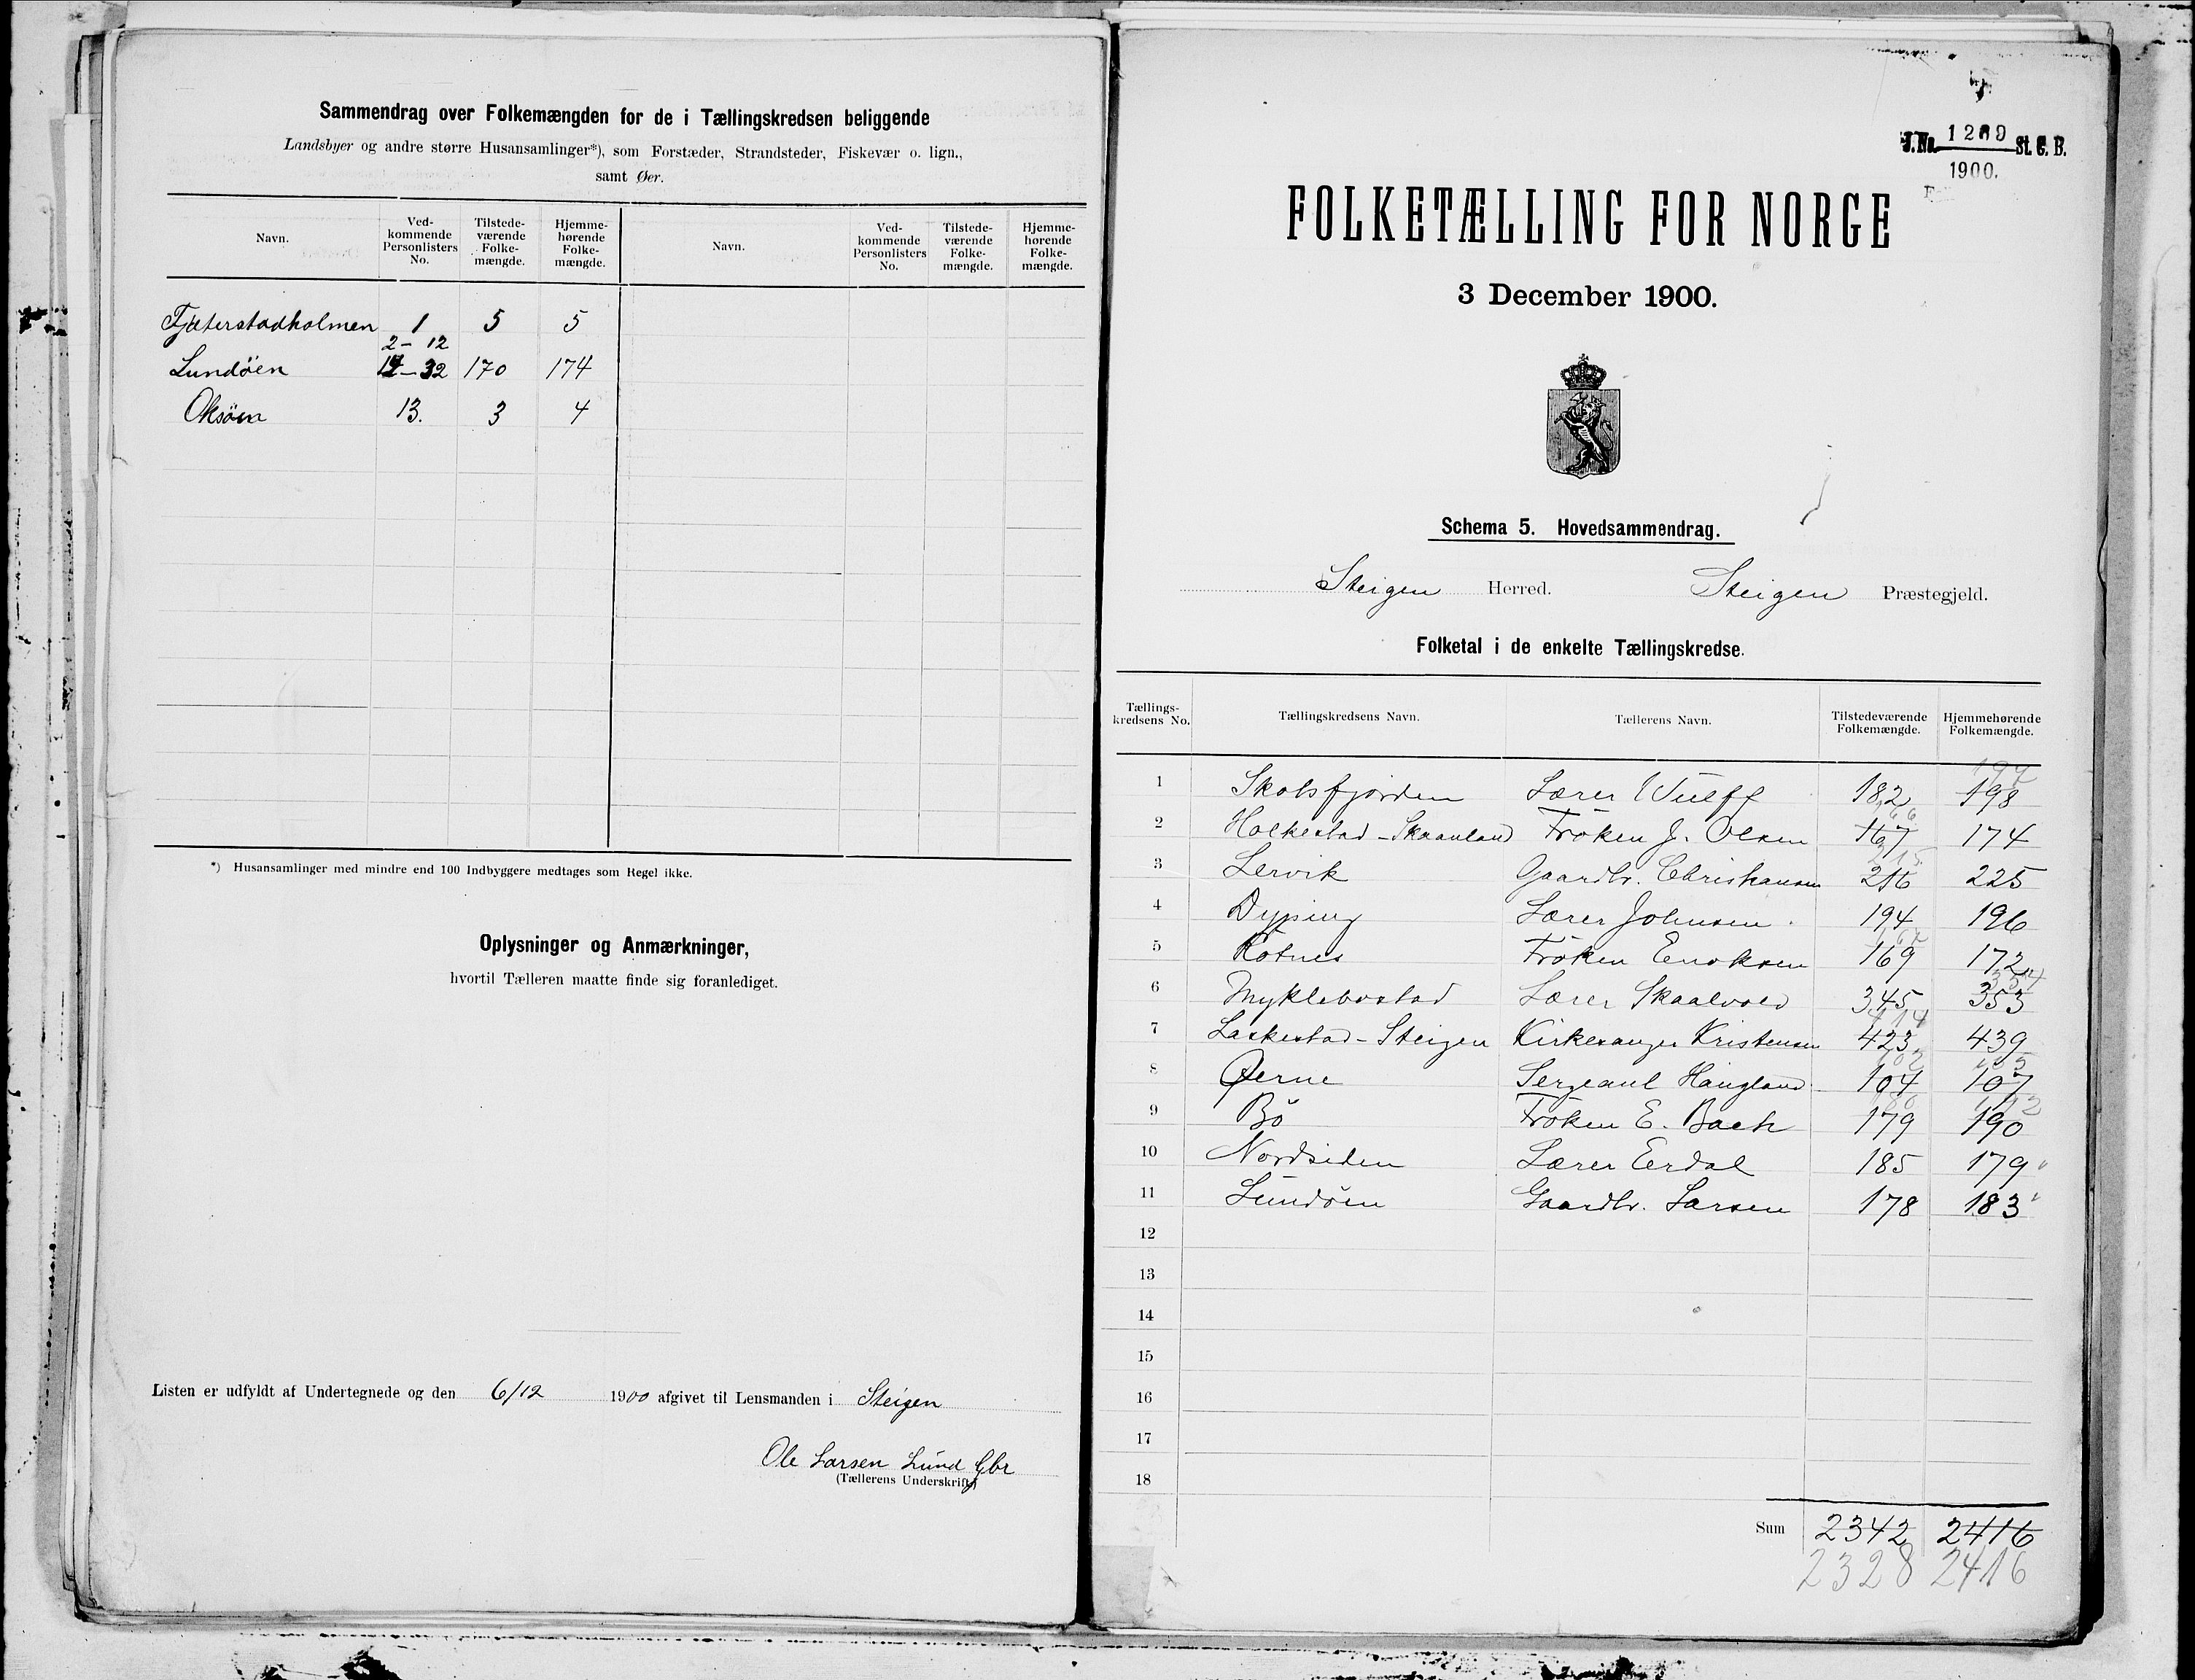 Sammendrag over Folkemængden for de i Tællingskredsen beliggende
Landsbyer og andre større Husansamlinger*), som Forstæder, Strandsteder, Fiskevær o. lign.,
samt Øer.
Navn. Ved-kommende Personlisters No. Tilstede-værende Folke-mængde. Hjemme-hørende Folke-mængde. Navn. Ved-kommende Personlisters No. Tilstede-værende Folke-mængde. Hjemme-hørende Folke-mængde.
Fjæterstadholmen 1 5 5
2 – 12
Lundöen 14–32 170 174
Oksöen 13. 3 4
*) Husansamlinger med mindre end 100 Indbyggere medtages som Regel ikke.
Oplysninger og Anmærkninger,
hvortil Tælleren maatte finde sig foranlediget.
Listen er udfyldt af Undertegnede og den 6/12 1900 afgivet til Lensmanden i Steigen
Ole Larsen Lund Gbr
(Tællerens Underskrift)
J. No. 1269 St. C. B.
1900.
FOLKETÆLLING FOR NORGE
3 December 1900.
Schema 5. Hovedsammendrag.
Steigen Herred. Steigen Præstegjeld.
Folketal i de enkelte Tællingskredse.
Tællings-kredsens No. Tællingskredsens Navn. Tællerens Navn. Tilstedeværende Folkemængde. Hjemmehørende Folkemængde.
197
1 Skotsfjorden Lærer Wulff 182 198
166
2 Holkestad–Skaanland Fröken J. Olsen 167 174
215
3 Lervik Gaardbr. Christiansen 216 225
4 Dyping Lærer Johnsen 194 196
5 Rotnes Fröken Enoksen 169 172
354
6 Myklebostad Lærer Skaalvold 345 353
414
7 Laskestad–Steigen Kirkesanger Kristensen 423 439
102 105
8 Øerne Sergeant Haugland 104 107
9 Bö Fröken E. Bach 179 190
10 Nordsiden Lærer Eerdal 185 179
11 Lundöen Gaardbr. Larsen 178 183
12
13
14
15
16
17
18
Sum 2342 2416
2328 2416